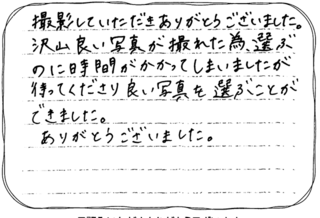 撮影していただきありがとうございました。
沢山良い写真が撮れた為、選ぶ
のに時間がかかってしまいましたが
待ってくださり良い写真を選ぶことが
できました。
ありがとうございました。